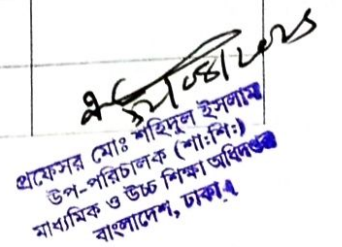 প্রফেসর মোঃ শহিদুল ইসলাম
উপ-পরিচালক (শাঃশিঃ)
মাধ্যমিক ও উচ্চ শিক্ষা অধিদপ্তর
বাংলাদেশ, ঢাকা।